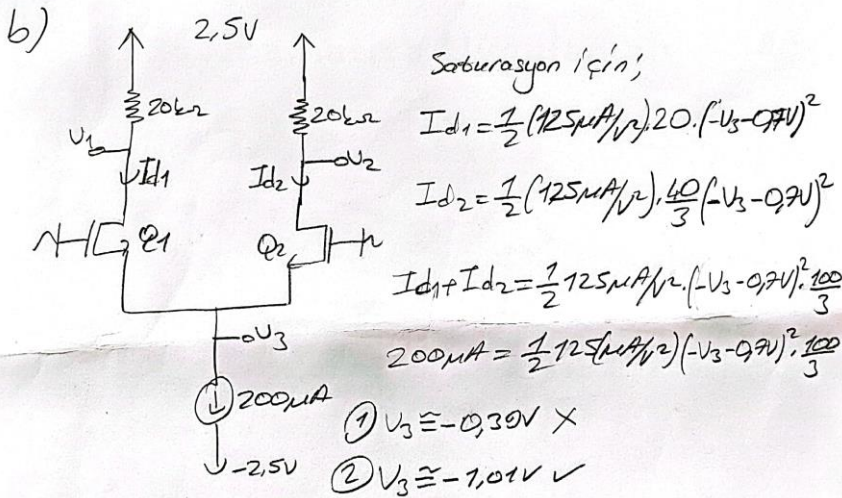 b)
2,5V
20kΩ
20kΩ
V1
V2
Id1
Id2
Q1
Q2
V3
200μA
-2,5V
Saturasyon için;
Id1 = 1/2 (125μA/V²).20.(-V3-0,7V)²
Id2 = 1/2 (125μA/V²).40/3 (-V3-0,7V)²
Id1+Id2 = 1/2 125μA/V².(-V3-0,7V)².100/3
200μA = 1/2 125(μA/V²)(-V3-0,7V)².100/3
① V3 ≅ -0,39V ✗
② V3 ≅ -1,01V ✓